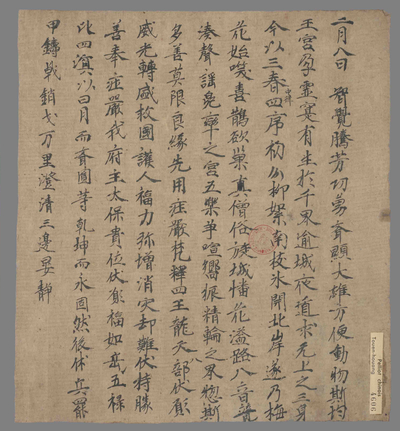 二月八日 智覺騰芳功勇齊顯大雄方便動物斯均
王宮孕靈寔有生於千界逾城夜遁求无上之三身
今以三春四序初分柳絮南枝氷開北岸遂乃梅
花始喜鵲欲巢真僧俗旋城幡花溢路八音競
湊聲謠兜率之宮五樂爭喧響振精輪之界惣斯
多善莫限良緣先用莊嚴梵釋四王龍天八部伏願
威光轉盛救國護人福力弥增消灾却難伏持勝
善奉莊嚴我府主太保貴位伏願福如岳五祿
比四溟以日月而齊圓等乾坤而永固然後休兵罷
甲鑄戟銷戈万里澄清三邊晏靜
Pelliot chinois
Touen-houang
4606